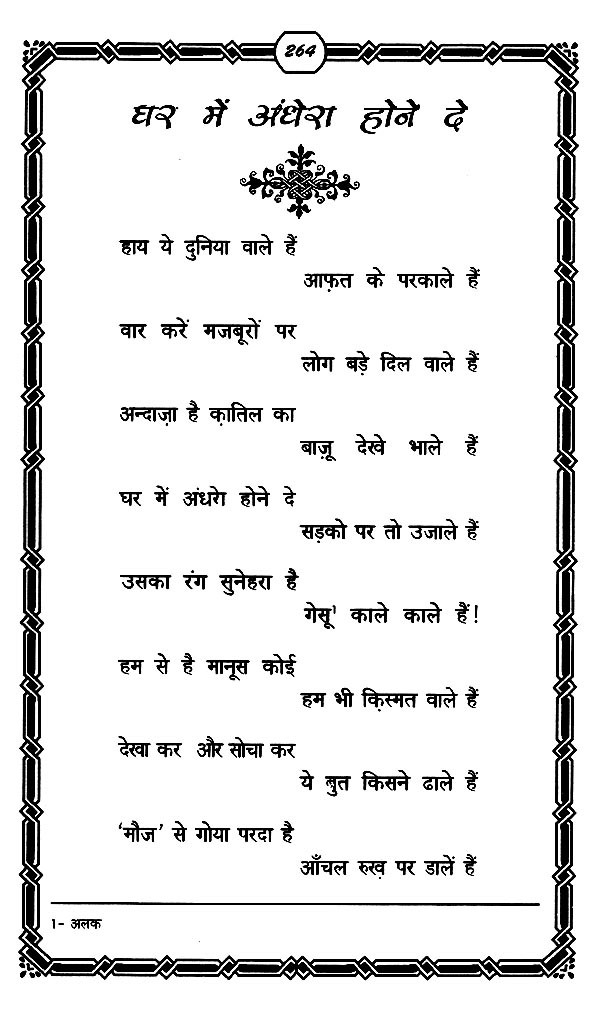 264
घर में अंधेरा होने दे
हाय ये दुनिया वाले हैं
आफ़त के परकाले हैं
वार करें मजबूरों पर
लोग बड़े दिल वाले हैं
अन्दाज़ा है क़ातिल का
बाजू़ देखे भाले हैं
घर में अंधरेा होने दे
सड़को पर तो उजाले हैं
उसका रंग सुनेहरा है
गेसू¹ काले काले हैं!
हम से है मानूस कोई
हम भी कि़स्मत वाले हैं
देखा कर और सोचा कर
ये बुत किसने ढाले हैं
‘मौज’ से गोया परदा है
आँचल रुख़ पर डालें हैं
1- अलक